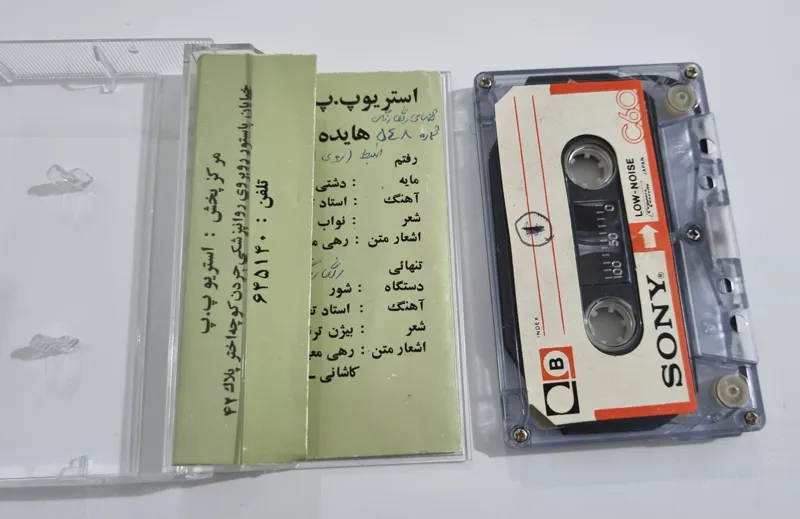 استریوپ.پ
شماره ۵۴۸ هایده
رفتم
مایه : دشتی
آهنگ : استاد
شعر : نواب
اشعار متن : رهی
تنهائی
دستگاه : شور
آهنگ : استاد
شعر : بیژن
اشعار متن : رهی
کاشانی ـ
مرکز پخش : استریو پ.پ
خیابان پاستور روبروی روانپزشکی جردن کوچه اختر پلاک ۴۲
تلفن : ۶۴۵۱۴۰
C60
LOW-NOISE
JAPAN
0
50
100
SONY®
INDEX
B